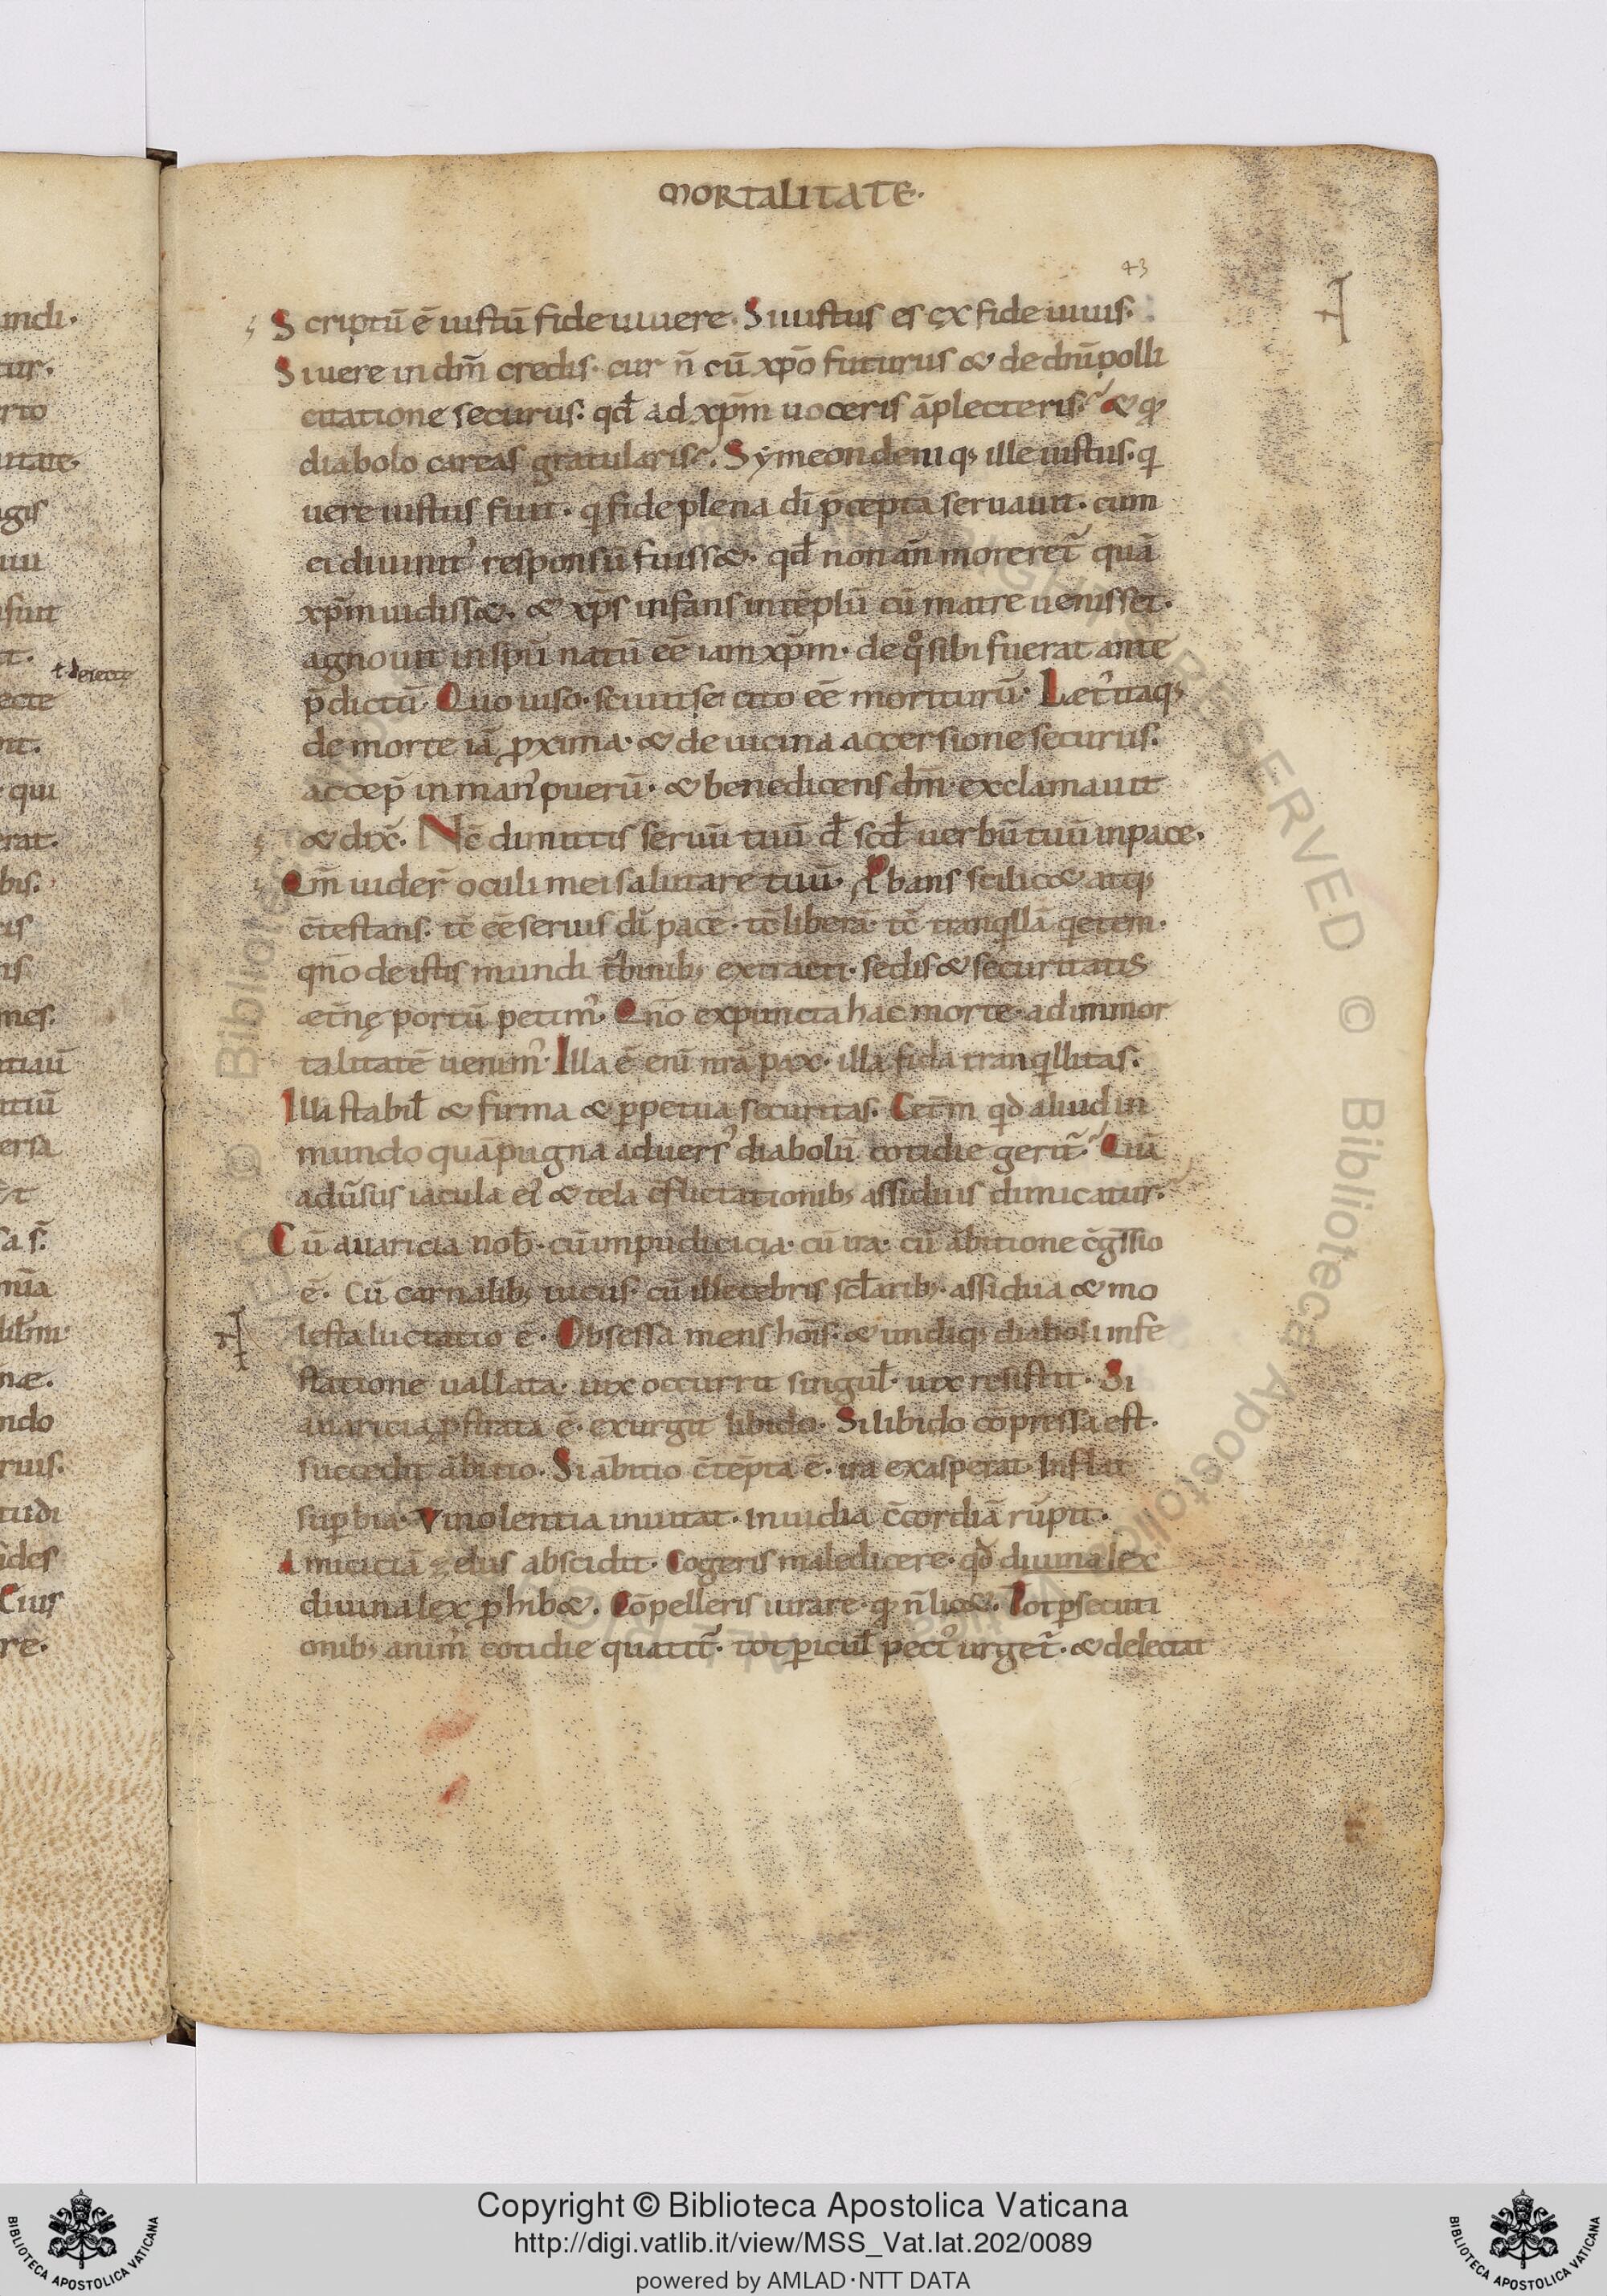 MORTALITATE·
43
Scriptū ē iustū fide uiuere· Si iustus es & ex fide uiuis·
Si uere in dm̄ credis· cur n̄ cū xp̄o futurus & de dn̄i polli
citatione securus· qd̄ ad xp̄m uoceris āplecteris· & ꝙ
diabolo careas gratularis· Symeon deniq; ille iustus· q
uere iustus fuit· q fide plena dī p̄cepta seruauit· cum
ei diuinit᾽ responsū fuiss&· qd̄ non an̄ moreret᷑ quā
xp̄m uidiss&· & xp̄s infans in tēplū cū matre uenisset·
agnouit in sp̄u natū eē iam xp̄m· de qͦ sibi fuerat ante
p̄dictū· Quo uiso· sciuit se cito eē moriturū· Læt᾽ itaq;
de morte iā ꝓxima· & de uicina accersione securus·
accep̄ in man᾽ puerū· & benedicens dm̄· exclamauit
& dix̄· Nc̄ dimittis seruū tuū d̄ scd̄ uerbū tuū in pace·
Qm̄ uider̄ oculi mei salutare tuū· Ꝓbans scilic& atq;
c̄testans· tc̄ eē seruis dī pacē· tc̄ liberā· tc̄ tranqllā qetem·
qn̄o de istis mundi t᷑binib; extracti· sedis & securitatis
æt᷑nę portū petim᾽· Qn̄o expuncta hac morte· ad immor
talitatē uenim᾽· Illa ē enī nr̄a pax· illa fida tranqllitas·
Illa stabil̄ & firma & ꝑpetua securitas· Cet᷑m qd̄ aliud in
mundo quā pugna aduers᾽ diabolū cotidie gerit᷑· Quā
adūsus iacula ei᾽ & tela c̄flictationib; assiduis dimicatur·
Cū auaricia nob̄· cū impudicicia· cū ira· cū ābitione c̄gssio
ē· Cū carnalib; uiciis· cū illecebris scl̄arib;· assidua & mo
lesta luctatio ē· Obsessa mens hoīs· & undiq; diaboli infe
statione uallata· uix occurrit singul̄· uix resistit· Si
auaricia ꝓstrata ē· exurgit libido· Si libido cōpressa est·
succedit ābitio· Si ābitio c̄tēpta ē· ira exasperat· Inflat
suꝑbia· Vinolentia inuitat· Inuidia c̄cordiā rūpit·
Amiciciā zelus abscidit· Cogeris maledicere· qd̄ diuina lex
diuina lex ꝓhib&· Cōpelleris iurare· ꝙ n̄ lic&· Tot ꝑsecuti
onib; anim᾽ cotidie quatit᷑· tot ꝑicul̄ pect᾽ urget᷑· & delectat
ł deiecte
Copyright © Biblioteca Apostolica Vaticana
http://digi.vatlib.it/view/MSS_Vat.lat.202/0089
powered by AMLAD·NTT DATA
BIBLIOTECA APOSTOLICA VATICANA
BIBLIOTECA APOSTOLICA VATICANA